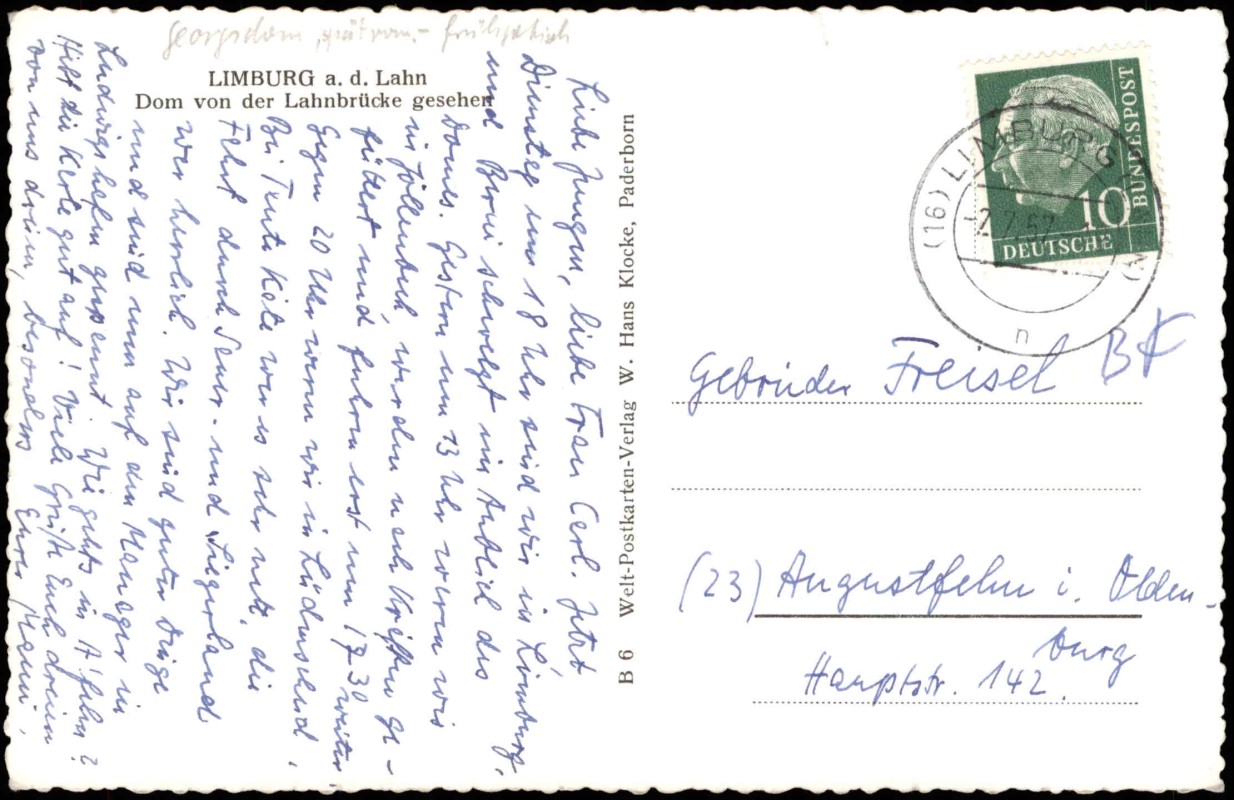 Georgsdom, spätrom.- frühgotisch
LIMBURG a. d. Lahn
Dom von der Lahnbrücke gesehen
Liebe Jungen, liebe Frau Cerl. Jetzt
Dienstag um 18 Uhr sind wir in Limburg,
und Berni schwelgt im Anblick des
Domes. Gestern um 13 Uhr waren wir
in Jöllenbeck, wurden nach Kräften ge-
füttert und fuhren erst um 17.30 weiter.
Gegen 20 Uhr waren wir in Lüdenscheid.
Bei Tante Käte war es sehr nett, die
Fahrt durch Sauer- und Siegerland
war herrlich. Wir sind guter Dinge
und sind nun auf den Manager in
Ludwigshafen gespannt. Wie gehts in A'fehn?
Hilt die Kerle gut auf! Viele Grüße Euch dreien
von uns dreien, besonders Eurer Mami.
B 6 Welt-Postkarten-Verlag W. Hans Klocke, Paderborn
DEUTSCHE
BUNDESPOST
10
(16) LIMBURG
-2.7.57
n
Gebrüder Freisel BK
(23) Augustfehn i. Olden-
burg
Hauptstr. 142.